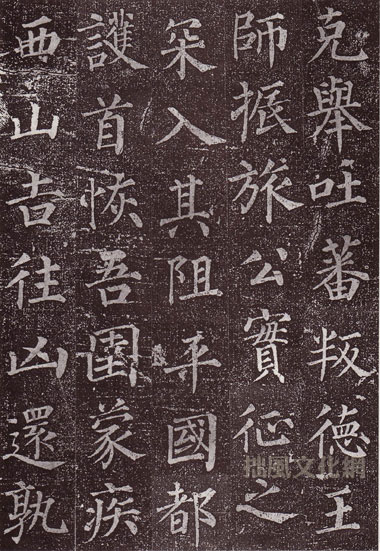 克舉吐蕃叛德王
師振旅公實征之
罙入其阻平國都
護首恢吾圉蒙疾
西山吉往凶還孰
拙風文化網